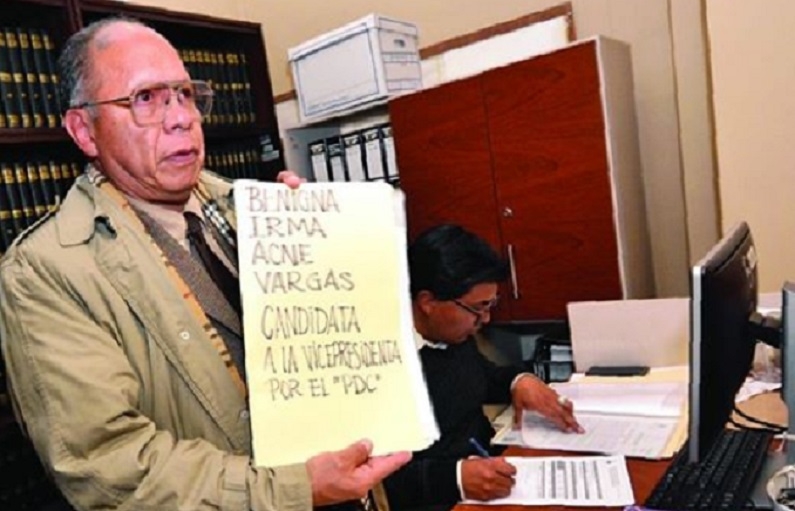 BENIGNA
IRMA
ACNE
VARGAS
CANDIDATA
A LA VICEPRESIDENTA
POR EL "PDC"